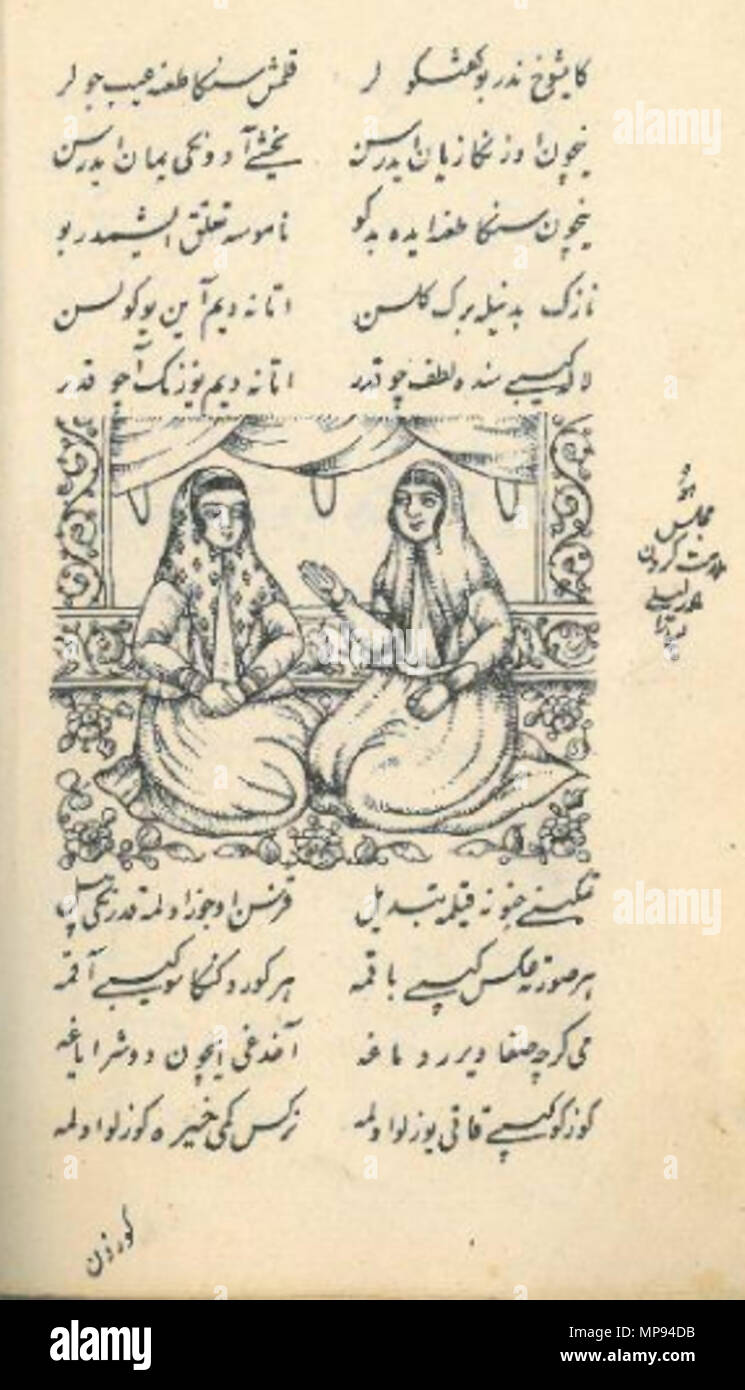 کای شوخ ندر بو گفتگولر قلمش سنکا طعنه عیب جولر
نیچون اوزنکا زیان ایدرسن یخشی آدونکی یمان ایدرسن
نیچون سنکا طعنه ایده بدکو ناموسه تعلق ایشمیدر بو
نازک بدنیله برک کلسن اما نه دیم
لاله کیمی سنده لطف چوقدر اما نه دیم یوزنک آچوقدر
مجلس
ملامت کردن
مادر لیلی
تمکینی جنونه قیلمه تبدیل قزسن اوجوز اولمه قدرنکی بیل
هر صورته عکس کیمی باقمه هر کوردوکنکا سو کیمی آقمه
می کرچه صفا ویرر دماغه آقدغی ایچون دوشر ایاغه
کوزکو کیمی قاتی یوزلو اولمه نرکس کمی خیره کوزلو اولمه
alamy
Image ID: MP94DB
www.alamy.com